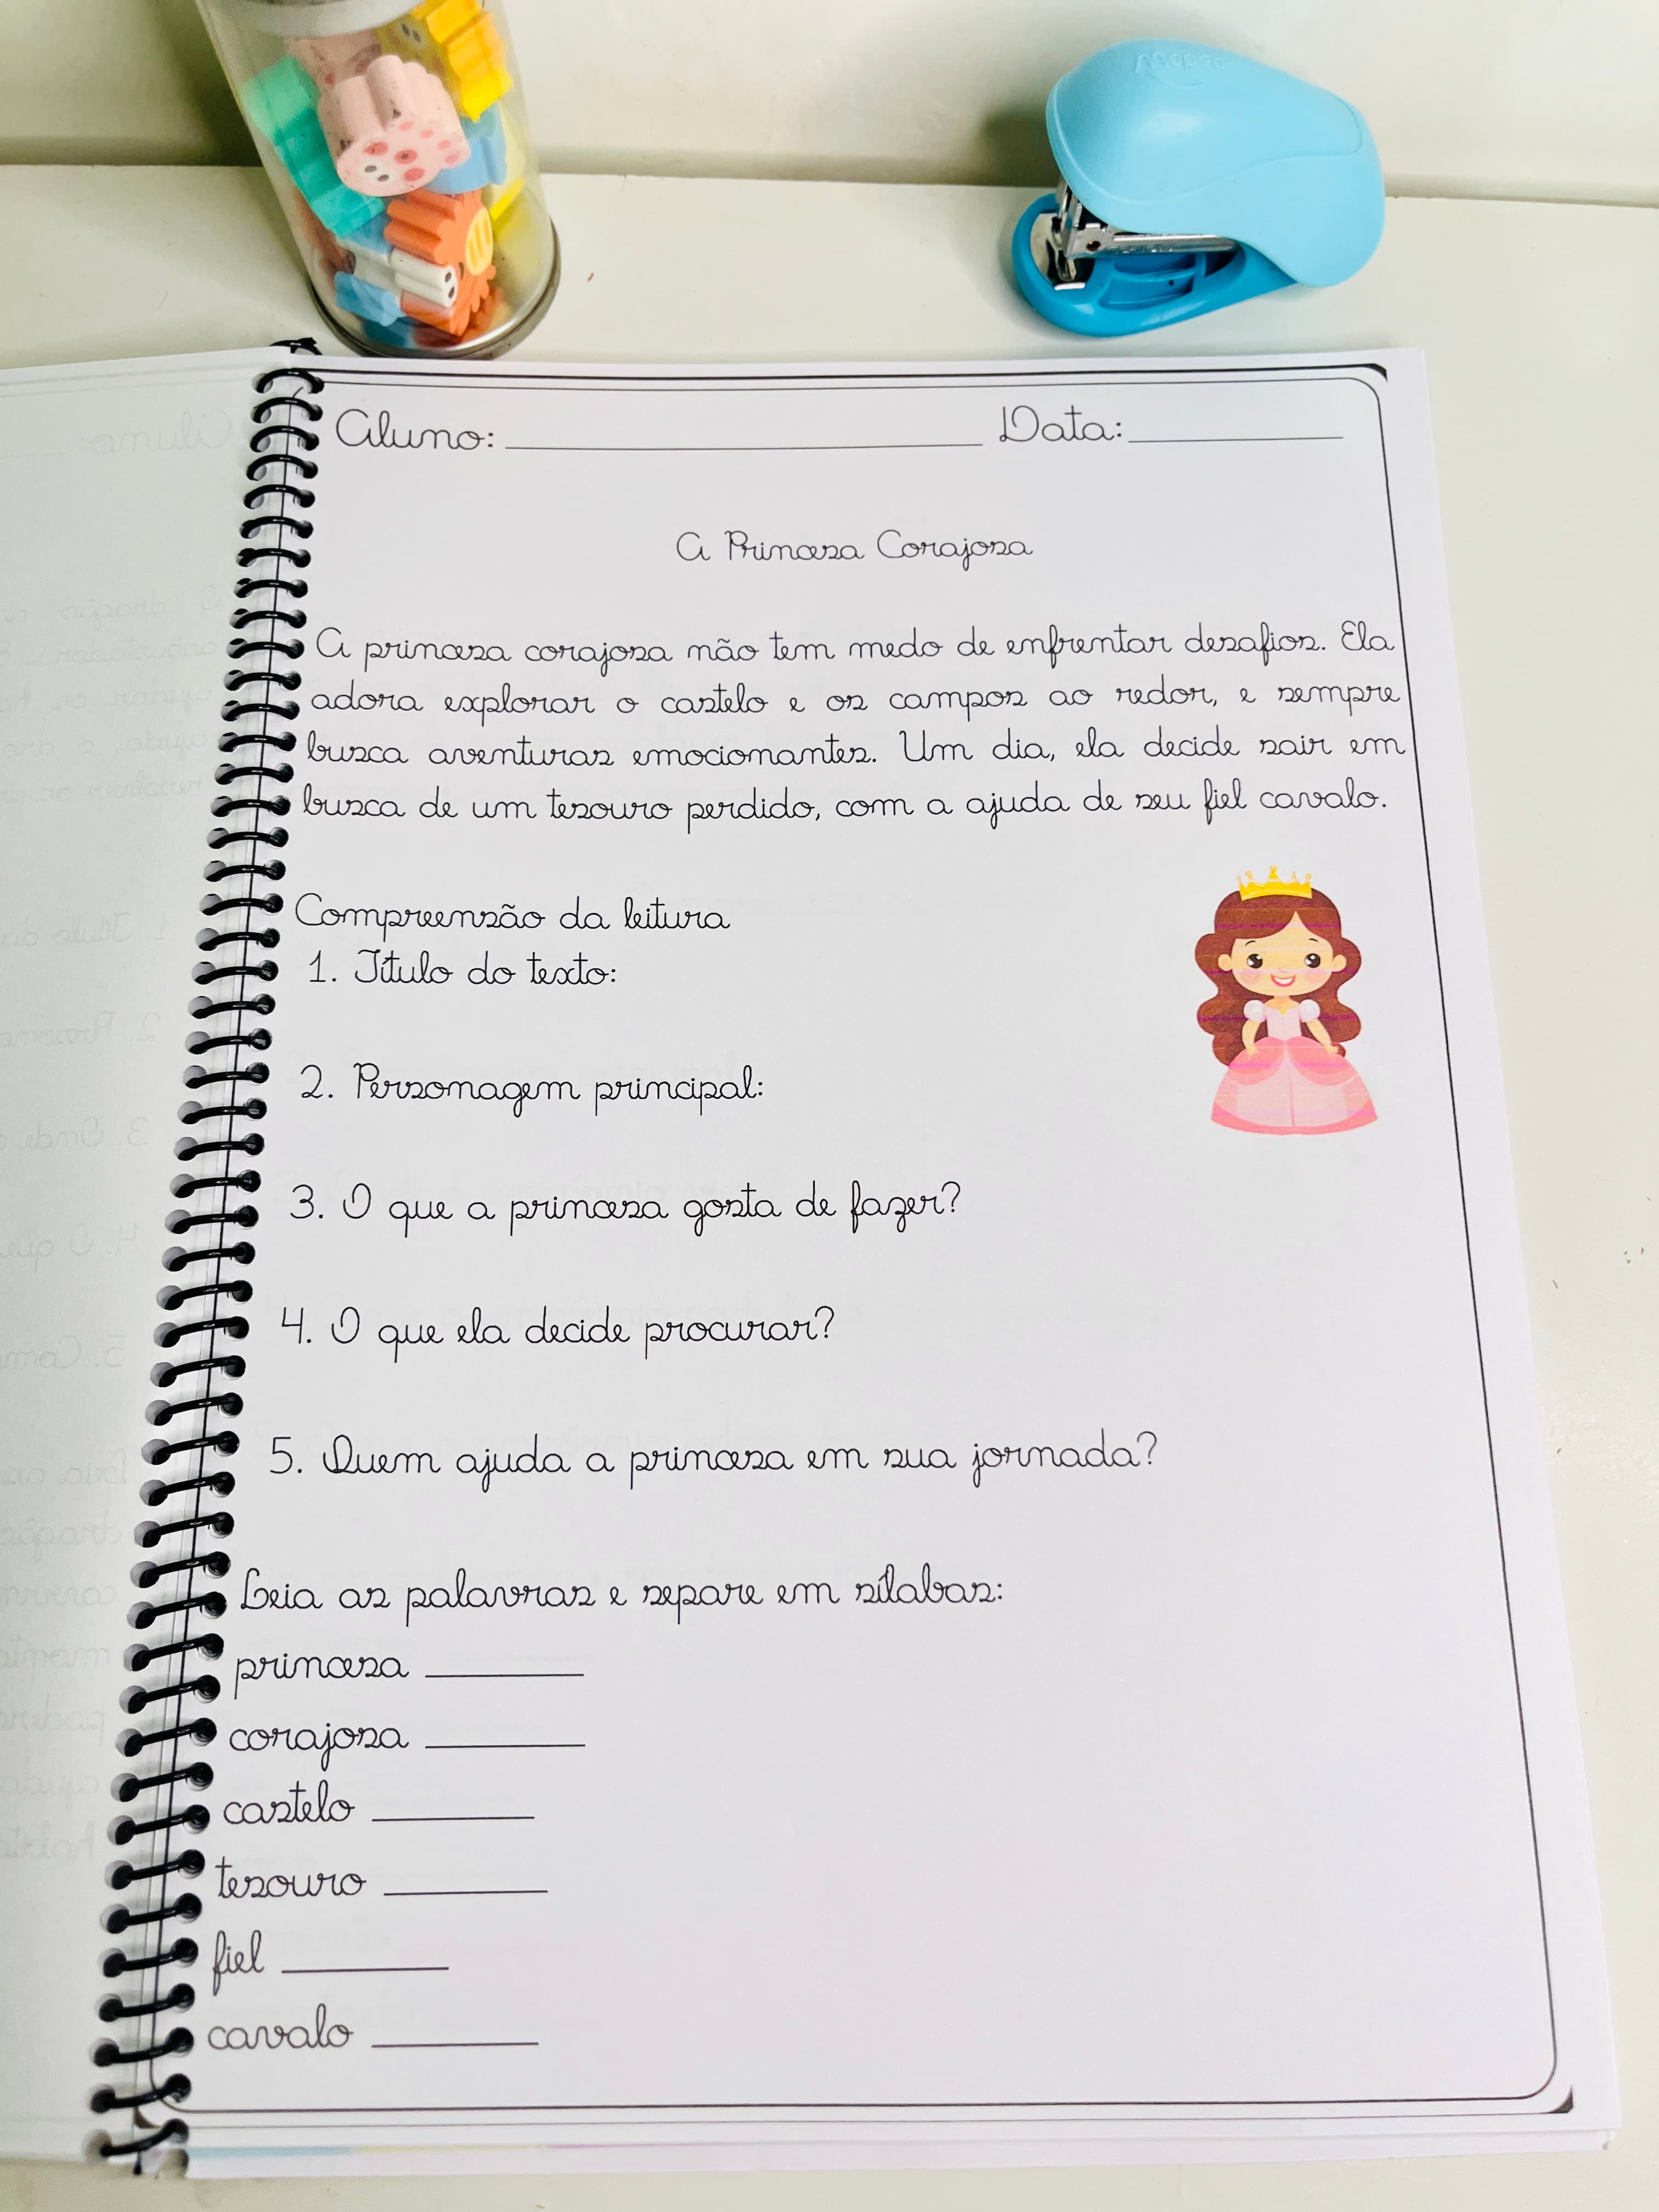 Aluno: ____________ Data: ________
A Princesa Corajosa
A princesa corajosa não tem medo de enfrentar desafios. Ela
adora explorar o castelo e os campos ao redor, e sempre
busca aventuras emocionantes. Um dia, ela decide sair em
busca de um tesouro perdido, com a ajuda de seu fiel cavalo.
Compreensão da leitura
1. Título do texto:
2. Personagem principal:
3. O que a princesa gosta de fazer?
4. O que ela decide procurar?
5. Quem ajuda a princesa em sua jornada?
Leia as palavras e separe em sílabas:
princesa ________
corajosa ________
castelo ________
tesouro ________
fiel ________
cavalo ________